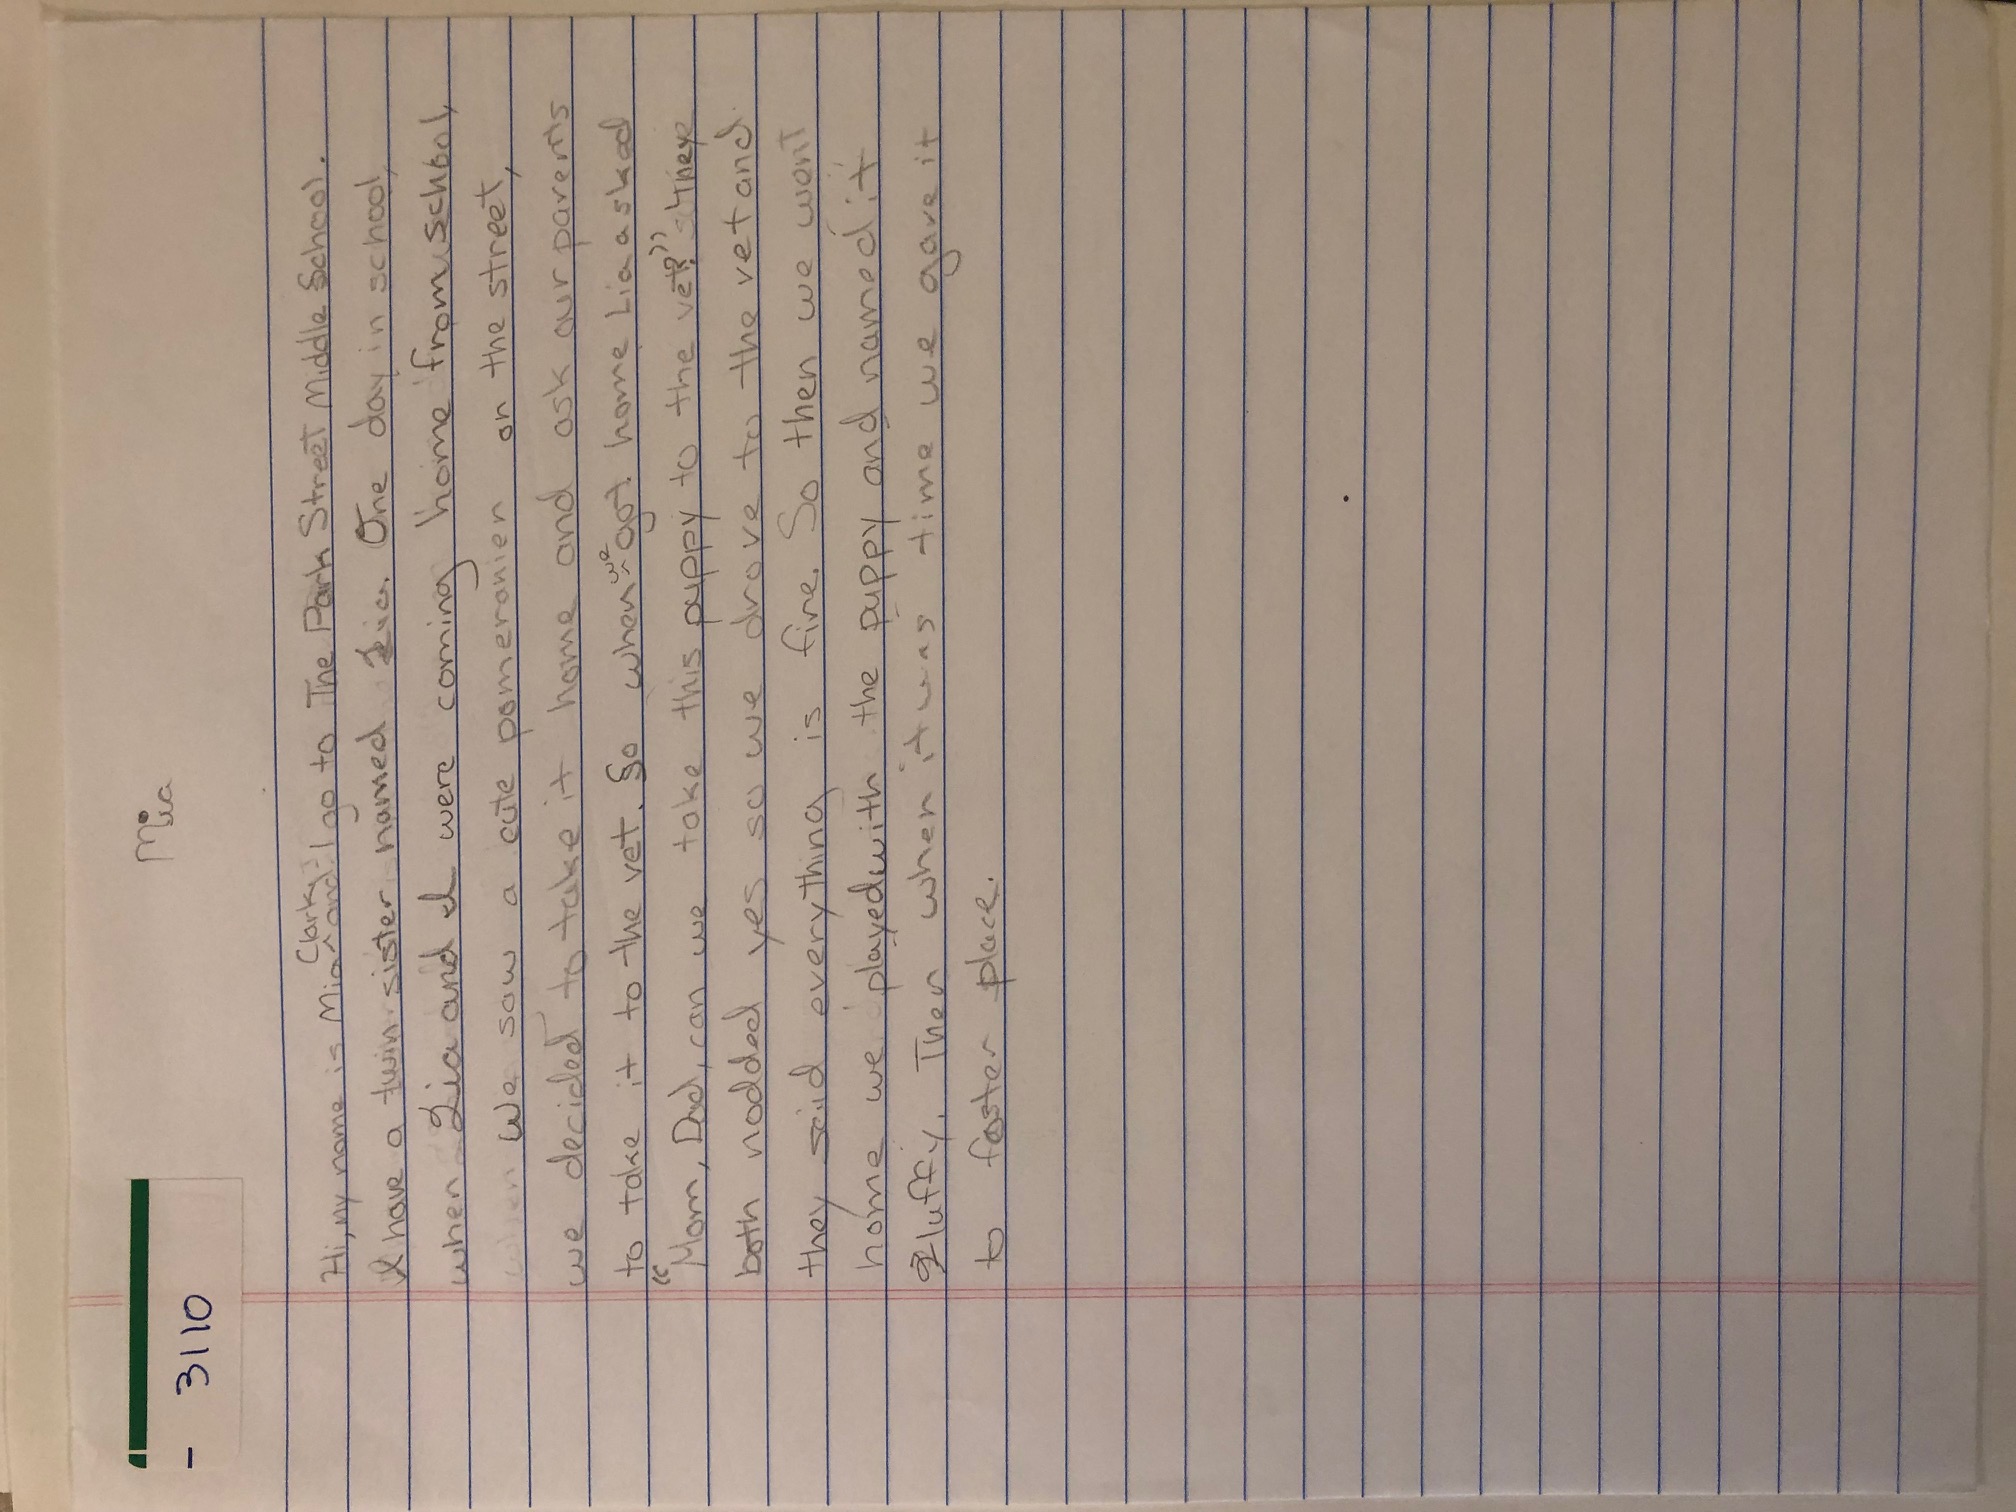 Mia
- 3110
Hi, my name is Mia Clark and I go to The Park Street Middle School.
I have a twin sister named Lia. One day in school,
when Lia and I were coming home from school,
when We saw a cute pomeranien on the street,
we decided to take it home and ask our parents
to take it to the vet. So when we got home Lia asked
"Mom, Dad, can we take this puppy to the vet?" They
both nodded yes so we drove to the vet and
they said everything is fine. So then we went
home we played with the puppy and named it
Fluffy. Then when it was time we gave it
to foster place.